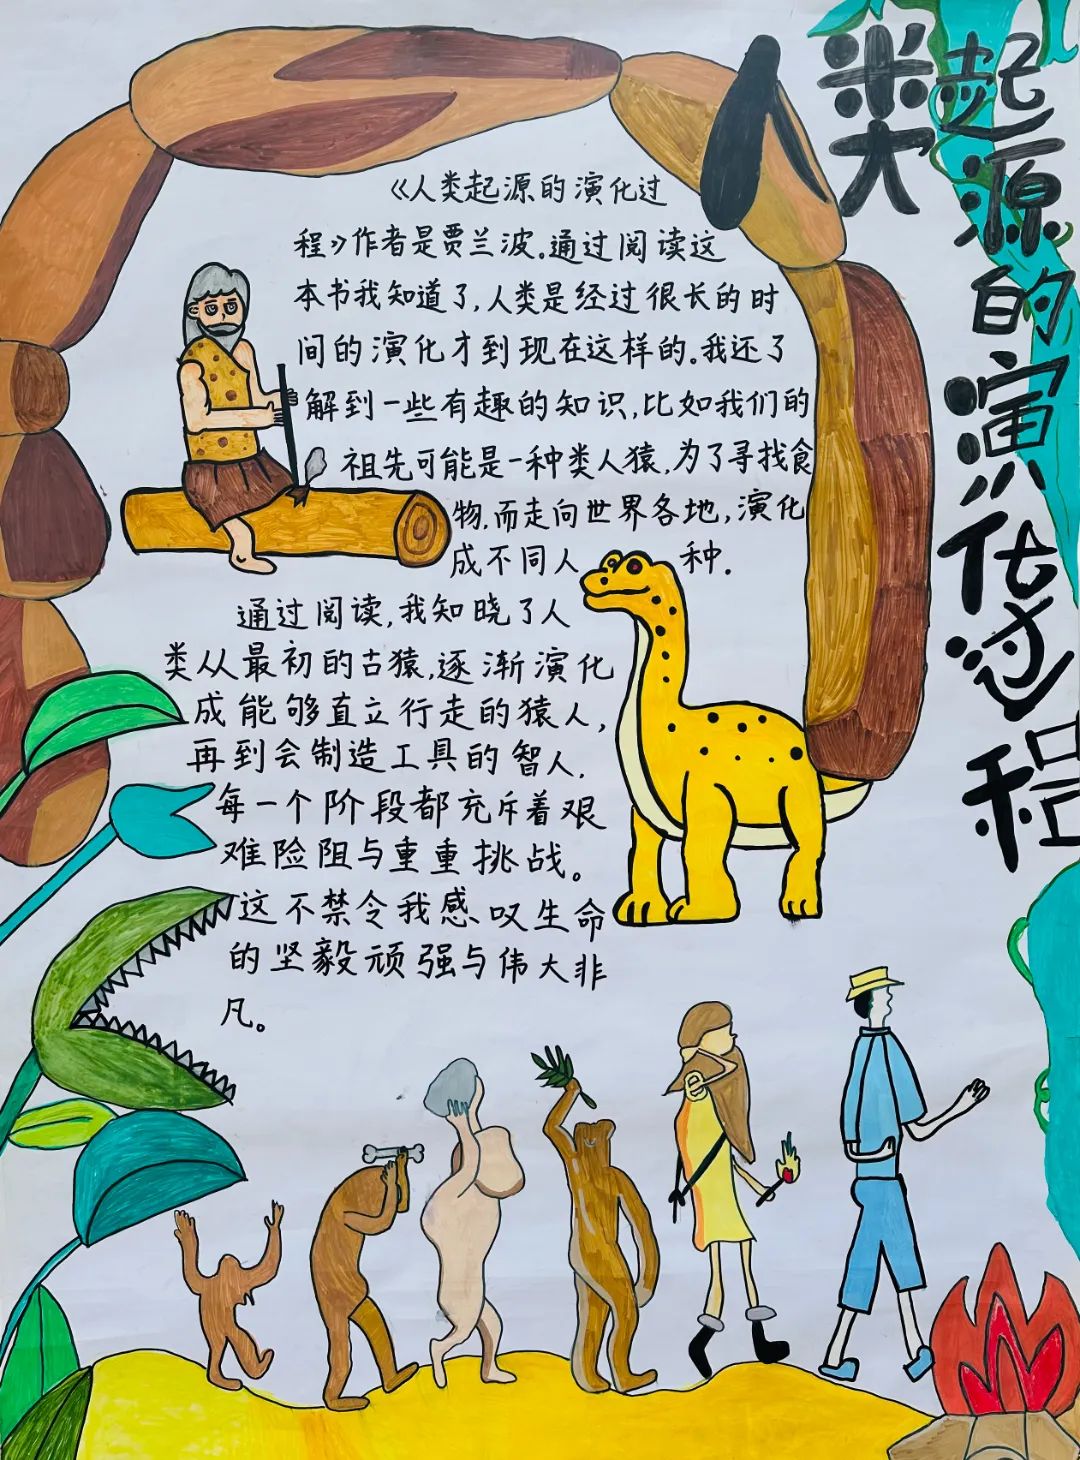 人类起源的演化过程
《人类起源的演化过
程》作者是贾兰波.通过阅读这
本书我知道了,人类是经过很长的时
间的演化才到现在这样的.我还了
解到一些有趣的知识,比如我们的
祖先可能是一种类人猿,为了寻找食
物,而走向世界各地,演化
成不同人种.
通过阅读,我知晓了人
类从最初的古猿,逐渐演化
成能够直立行走的猿人,
再到会制造工具的智人.
每一个阶段都充斥着艰
难险阻与重重挑战。
这不禁令我感叹生命
的坚毅顽强与伟大非
凡。